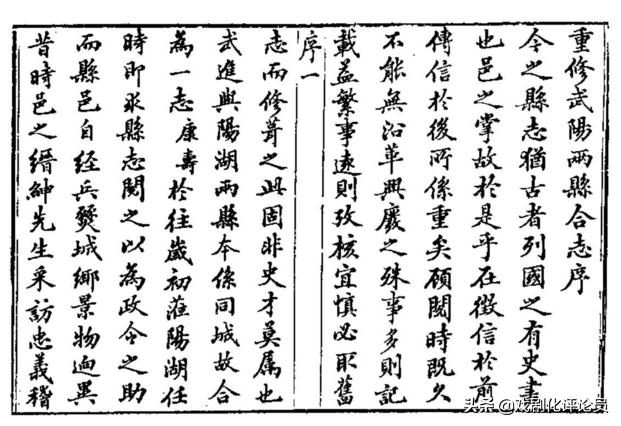 重修武陽兩縣合志序
今之縣志猶古者列國之有史書
也邑之掌故於是乎在徵信於前
傳信於後所係重矣顧閱時既久
不能無沿革興廢之殊事多則記
載益繁事遠則攷核宜慎必取舊
序一
志而修葺之此固非史才莫屬也
武進與陽湖兩縣本係同城故合
為一志康壽於往歲初蒞陽湖任
時即求縣志閱之以為政令之助
而縣邑自經兵燹城鄉景物迥異
昔時邑之縉紳先生采訪忠義稽
头条 @戏剧化评论员